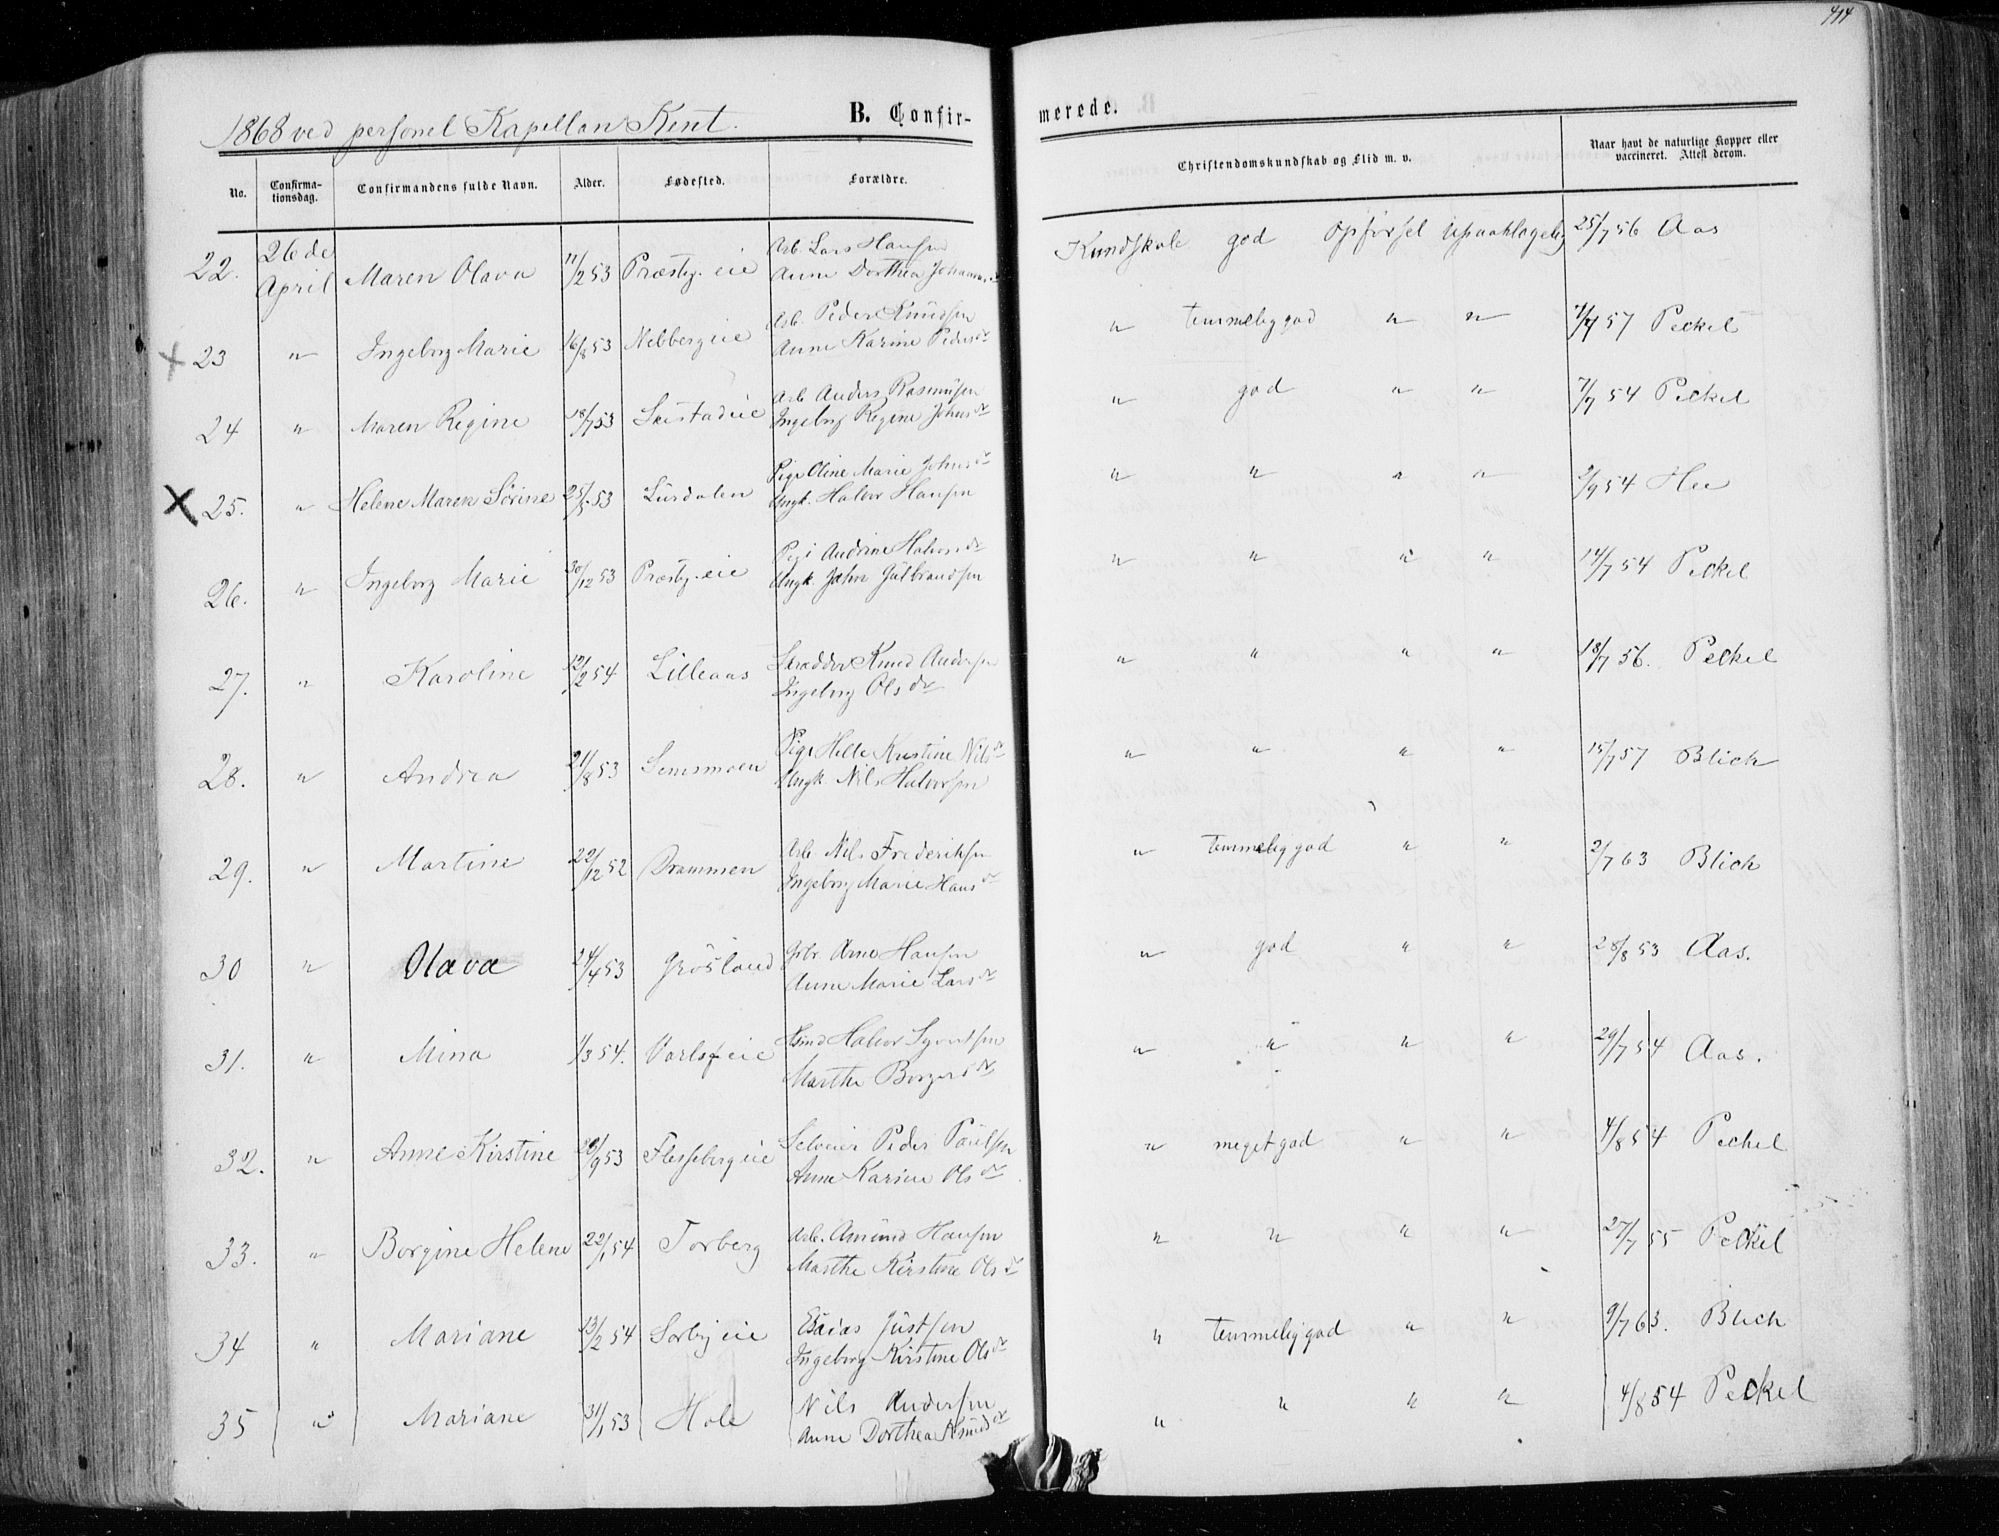 414
1868 ved personel Kapellan Kent. B. Confir- merede.
No. Confirma-tionsdag. Confirmandens fulde Navn. Alder. Fødested. Forældre. Christendomskundskab og Flid m. v. Naar havt de naturlige Kopper eller vaccineret. Attest derom.
22. 26de April Maren Olava 11/2 53 Præstg. eie Arb. Lars Hansen Anne Dorthea Kundskab god Opførsel upaaklagelig 25/7 56 Aas
23 " Ingeborg Marie 16/8 53 Nebbergeie Arb. Peder Knudsen Anne Karine Pedersdr " temmelig god " " 7/7 57 Peckel
24 " Maren Regine 18/7 53 Arb Anders Rasmusen Ingeborg Regine Johnsdr " god " " 7/7 54 Peckel
25. " Helene Maren Sørine 25/5 53 Lurdalen Pige Oline Marie Johnsdr Ungk. Halvor Hansen " " " " 2/9 54 Hee
26. " Ingeborg Marie 30/12 53 Præstg. eie Pige Andrine Halvorsdr Ungk. John Gulbrandsen " " " " 14/7 54 Peckel
27. " Karoline 12/2 54 Lilleaas Skrædder Knud Andersen Ingeborg Olsdr " " " " 18/7 56. Peckel
28. " Andrea 21/8 53 Semsmoen Pige Helle Kristine Nilsdr Ungk. Nils Halvorsen " " " " 15/7 57 Blich
29. " Martine 22/12 52 Drammen Arb. Nils Frederiksen Ingeborg Marie Hansdr " temmelig god " " 2/7 63 Blich
30 " Olava 24/4 53 Grøsland Grbr. Arne Hansen Anne Marie Larsdr " god " " 28/8 53 Aas.
31. " Mina 1/3 54. Halvor Syvertsen Marthe Borgersdr " " " " 29/7 54 Aas.
32. " Anne Kirstine 20/9 53 Flesseberg eie Selveier Peder Paulsen Anne Karine Olsdr " meget god " " 4/8 54 Peckel
33. " Borgine Helene 22/1 54 Torberg Arb. Amund Hansen Marthe Kirstine Olsdr " " " " 27/7 55 Peckel
34 " Mariane 13/2 54 Sorby eie Esaias Justsen Ingeborg Kirstine Olsdr " temmelig god " " 9/7 63. Blich
35 " Mariane 31/1 53 Hole Nils Andersen Anne Dorthea " " " " 4/8 54 Peckel